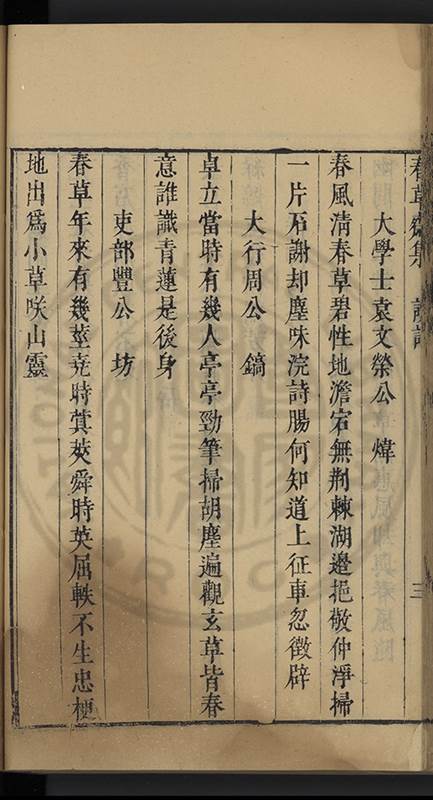 春草齋集
三
大學士袁文榮公煒
春風清春草碧性地澹宕無荆棘湖邊挹敬仲淨掃
一片石謝却塵味浣詩腸何知道上征車忽徵辟
大行周公鎬
卓立當時有幾人亭亭勁筆掃胡塵遍觀玄草皆春
意誰識青蓮是後身
吏部豐公坊
春草年來有幾莖堯時蓂莢舜時英屈軼不生忠梗
地出爲小草咲山靈